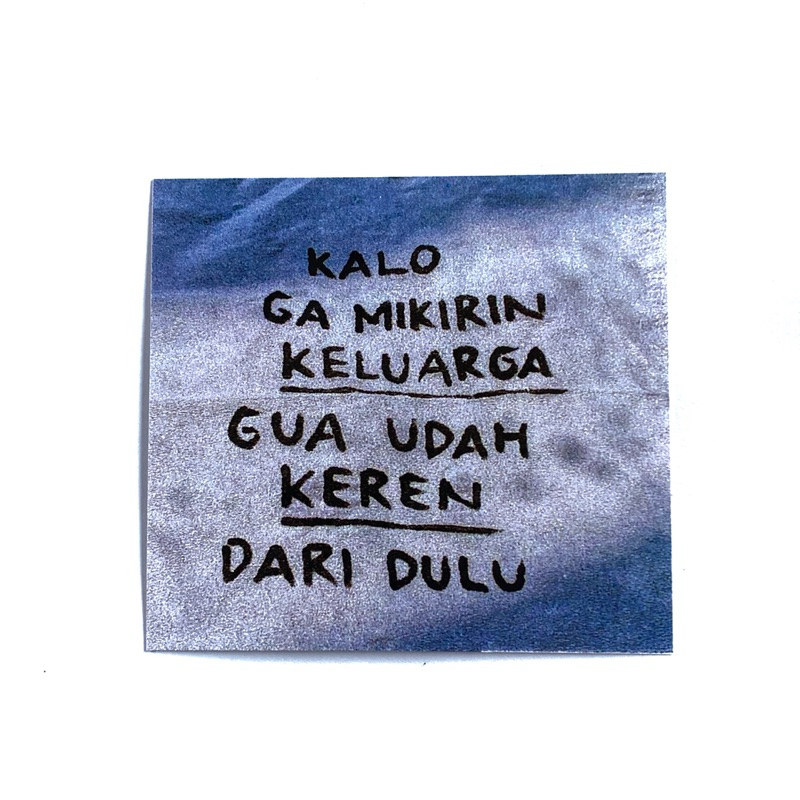 KALO
GA MIKIRIN
KELUARGA
GUA UDAH
KEREN
DARI DULU